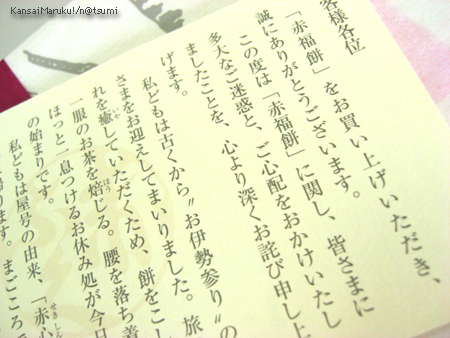 KansaiMaruku!/n@tsumi
客様各位
「赤福餅」をお買い上げいただき、
誠にありがとうございます。
この度は「赤福餅」に関し、皆さまに
多大なご迷惑と、ご心配をおかけいたし
ましたことを、心より深くお詫び申し上
げます。
私どもは古くから〝お伊勢参り〟の
さまをお迎えしてまいりました。旅
れを癒していただくため、餅をこし
一服のお茶を焙じる。腰を落ち着
ほっと一息つけるお休み処が今日
の始まりです。
私どもは屋号の由来、「赤心
ります。まごころ